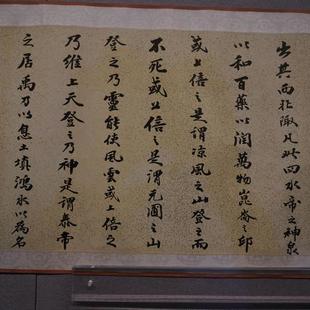 出其西北陬凡此四水帝之神泉
以和百藥以潤萬物崑崙之邱
或上倍之是謂涼風之山登之而
不死或上倍之是謂元圃之山
登之乃靈能使風雲或上倍之
乃維上天登之乃神是謂泰帝
之居禹乃以息土填鴻水以為名